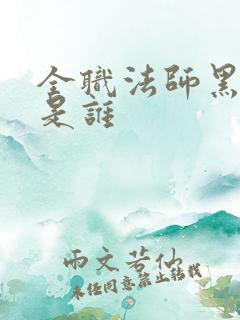 全職法師黑
是誰
雨文若仙
未经同意禁止转载